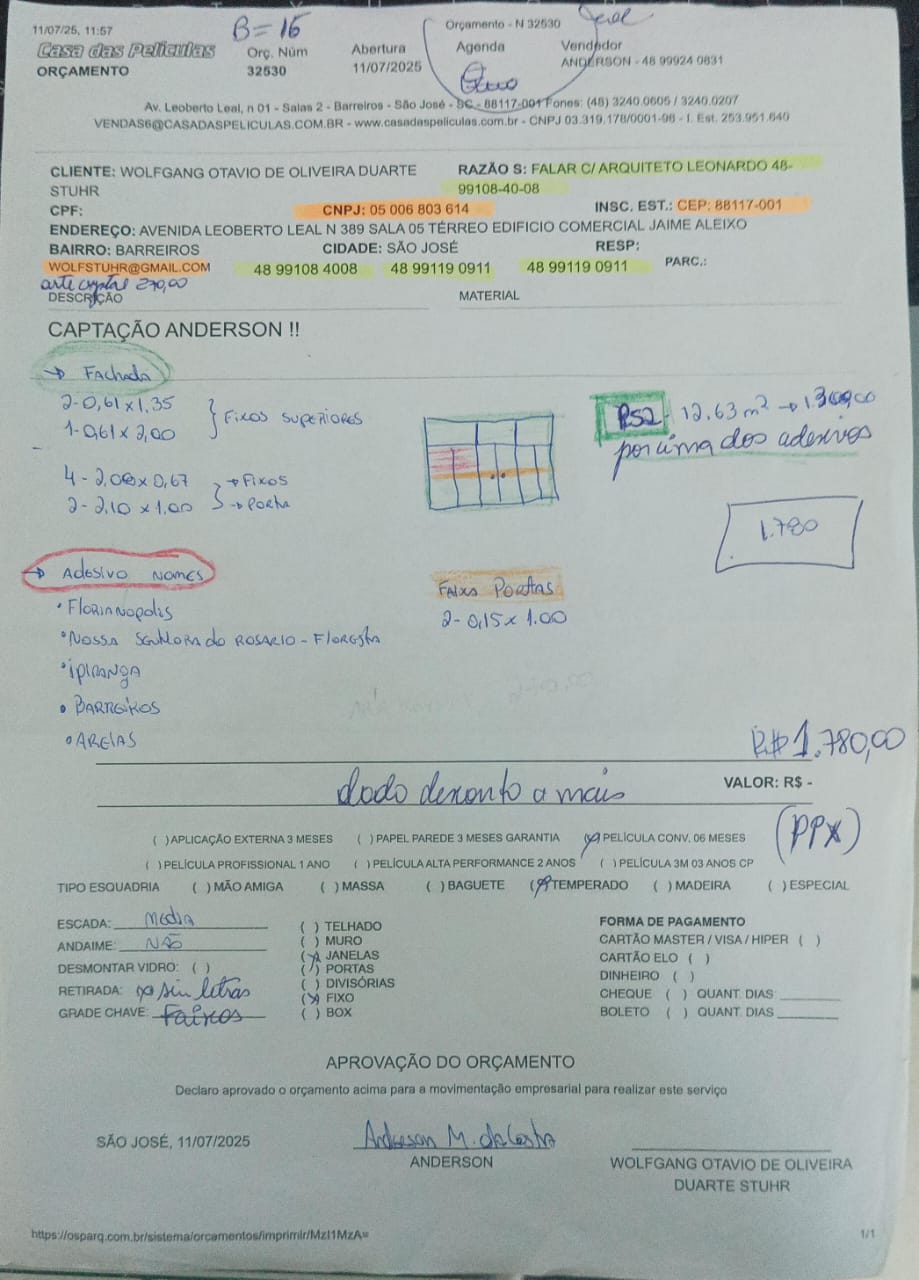 11/07/25, 11:57
B=15
Orçamento - N 32530
Casa das Películas
Orç. Núm
Abertura
Agenda
Vendedor
ORÇAMENTO
32530
11/07/2025
ANDERSON - 48 99924 0831
Av. Leoberto Leal, n 01 - Salas 2 - Barreiros - São José - SC - 88117-001 Fones: (48) 3240.0605 / 3240.0207
VENDAS6@CASADASPELICULAS.COM.BR - www.casadaspeliculas.com.br - CNPJ 03.319.178/0001-96 - I. Est. 253.951.640
CLIENTE: WOLFGANG OTAVIO DE OLIVEIRA DUARTE STUHR
RAZÃO S: FALAR C/ ARQUITETO LEONARDO 48-99108-40-08
CPF:
CNPJ: 05 006 803 614
INSC. EST.: CEP: 88117-001
ENDEREÇO: AVENIDA LEOBERTO LEAL N 389 SALA 05 TÉRREO EDIFICIO COMERCIAL JAIME ALEIXO
BAIRRO: BARREIROS
CIDADE: SÃO JOSÉ
RESP:
WOLFSTUHR@GMAIL.COM
48 99108 4008
48 99119 0911
48 99119 0911
PARC.:
arte crystal 270,00
DESCRIÇÃO
MATERIAL
CAPTAÇÃO ANDERSON !!
→ Fachada
2-0,61x1,35
1-0,61x2,00
} Fixos superiores
4-2,08x0,67 → Fixos
2-2,10x1,00 → Porta
PS2 - 12,63m² → 1.300,00
por cima dos adesivos
1.780
→ Adesivo nomes
• Florianopolis
• Nossa Senhora do Rosario - Floresta
• Ipiranga
• Barreiros
• Areias
Faixa Portas
2-0,15x1.00
R$ 1.780,00
dado desconto a mais
VALOR: R$ -
( )APLICAÇÃO EXTERNA 3 MESES ( )PAPEL PAREDE 3 MESES GARANTIA (x)PELÍCULA CONV. 06 MESES
(PPX)
( )PELÍCULA PROFISSIONAL 1 ANO ( )PELÍCULA ALTA PERFORMANCE 2 ANOS ( )PELÍCULA 3M 03 ANOS CP
TIPO ESQUADRIA ( ) MÃO AMIGA ( ) MASSA ( ) BAGUETE (x)TEMPERADO ( ) MADEIRA ( ) ESPECIAL
ESCADA: Media
ANDAIME: NÃO
DESMONTAR VIDRO: ( )
RETIRADA: (x) sim letras
GRADE CHAVE: Faixas
( ) TELHADO
( ) MURO
(x) JANELAS
(x) PORTAS
( ) DIVISÓRIAS
(x) FIXO
( ) BOX
FORMA DE PAGAMENTO
CARTÃO MASTER / VISA / HIPER ( )
CARTÃO ELO ( )
DINHEIRO ( )
CHEQUE ( ) QUANT. DIAS:
BOLETO ( ) QUANT. DIAS
APROVAÇÃO DO ORÇAMENTO
Declaro aprovado o orçamento acima para a movimentação empresarial para realizar este serviço
SÃO JOSÉ, 11/07/2025
Anderson M. da Costa
ANDERSON
WOLFGANG OTAVIO DE OLIVEIRA
DUARTE STUHR
https://osparq.com.br/sistema/orcamentos/imprimir/MzI1MzA=
1/1